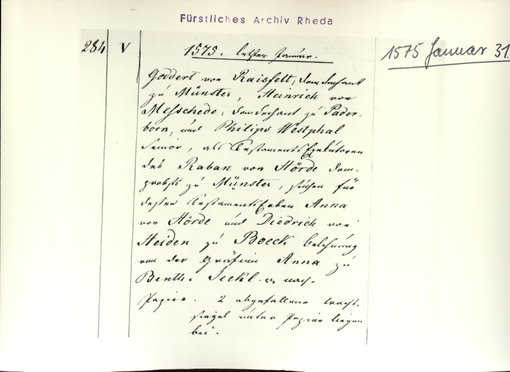 Fürstliches Archiv Rheda
284 V 1575. letzter Januar. 1575 Januar 31.
Goddert von Raisfelt, Domdechant
zu Münster, Heinrich von
Messchede, Domdechant zu Pader-
born, und Philips Westphal
Senior, als Testaments Exekutoren
des Raban von Hörde Dom-
probst zu Münster, suchen für
dessen Testaments Erben Anna
von Hörde und Diedrich von
Heiden zu Boeck belehnung
von der Gräfin Anna zu
Benth: Teckl. nach.
Papier. 2 abgefallene
siegel unter Papier liegen
bei.